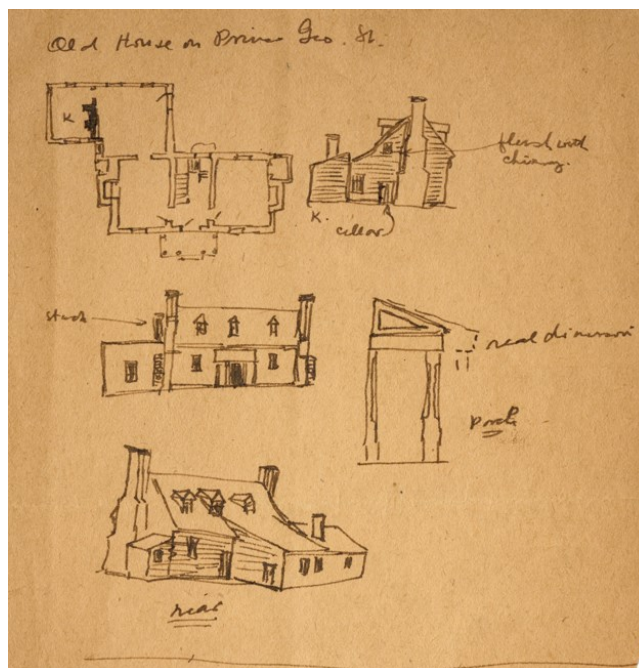 Old House on Prince Geo. St.
K
flush with
chimney.
K.
cellar
stack
real dimension
porch
rear